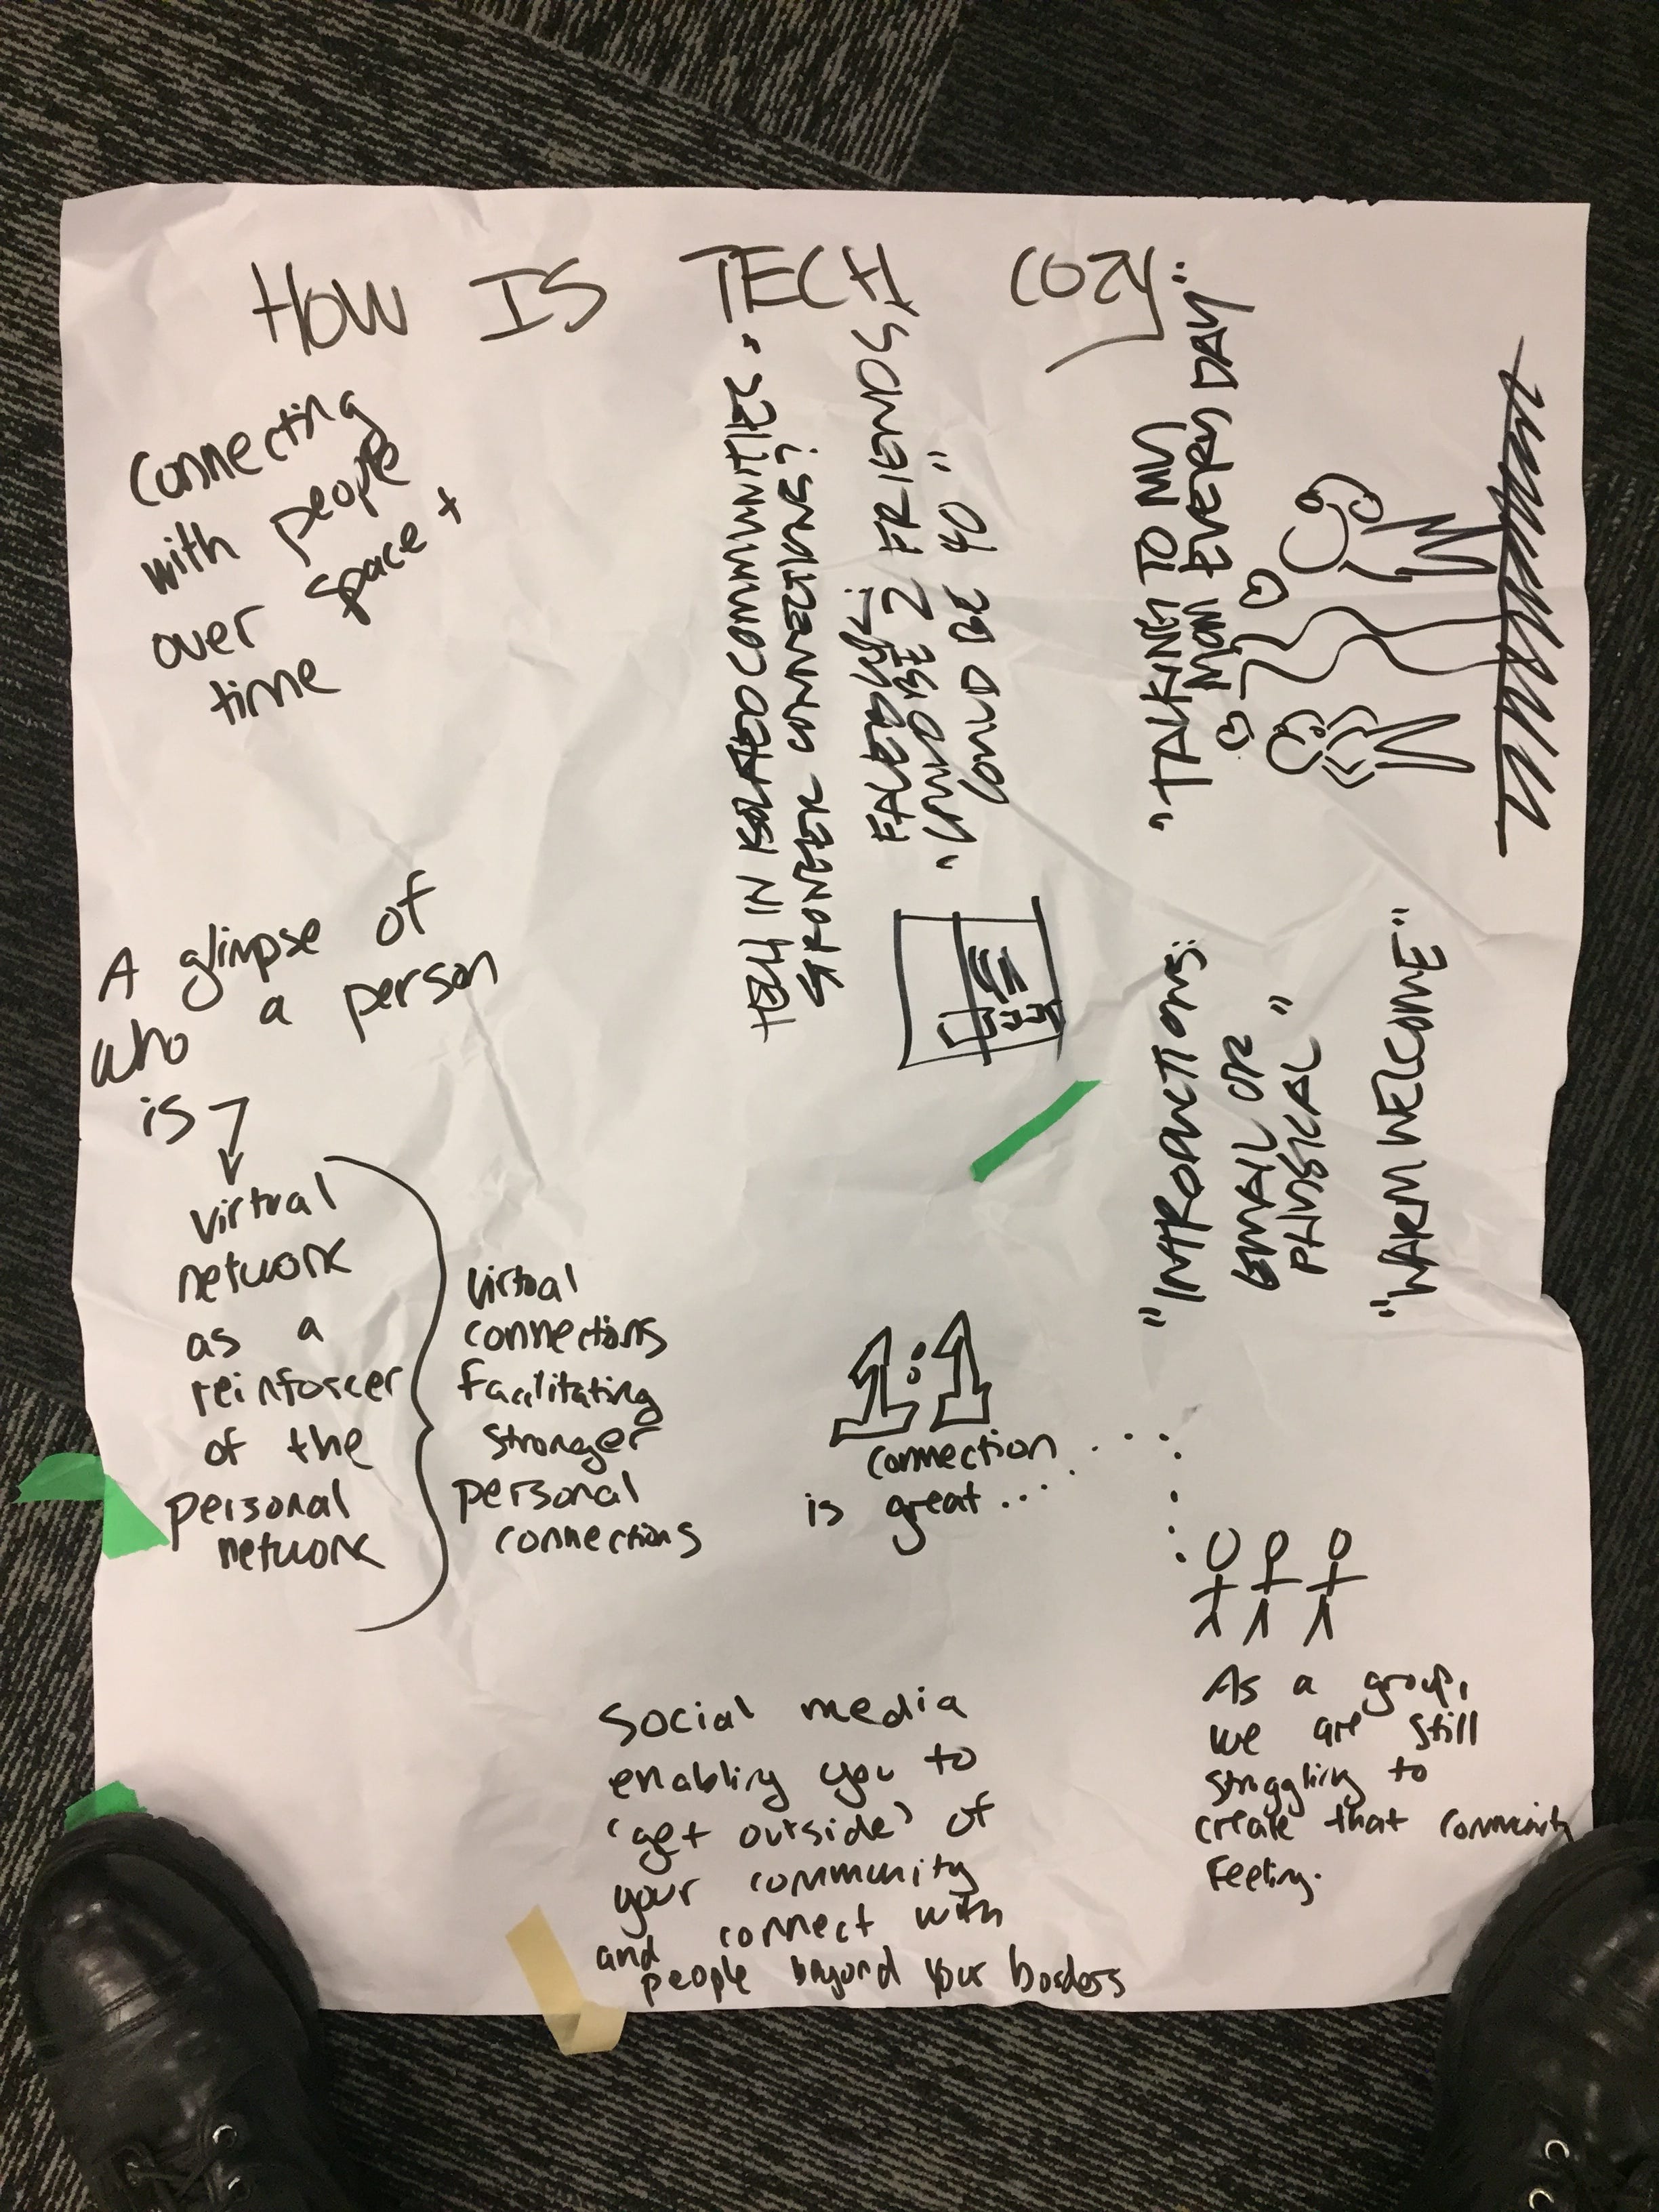 HOW IS TECH COZY
Connecting
with people
over space +
time
A glimpse of
who a person
is
virtual
network
as a
reinforcer
of the
personal
network
Virtual
connections
facilitating
stronger
personal
connections
TECH IN ISOLATED COMMUNITIES.
STRONGER CONNECTIONS?
FACEBOOK:
"COULD BE 2 FRIENDS,
COULD BE 40"
"TALKING TO MY
MOM EVERY DAY"
"INTRODUCTIONS:
EMAIL OR
PHYSICAL"
"WARM WELCOME"
1:1
connection
is great...
As a group,
we are still
struggling to
create that community
feeling.
Social media
enabling you to
'get outside' of
your community
and connect with
people beyond your borders